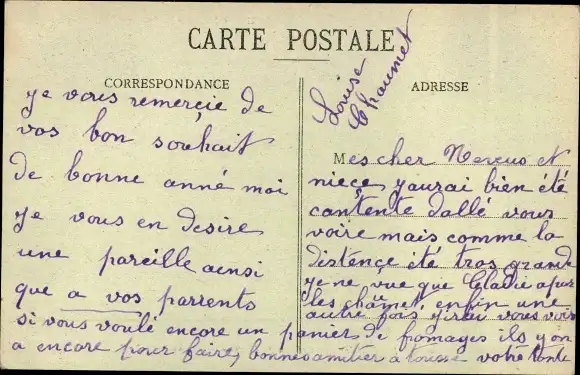 CARTE POSTALE
CORRESPONDANCE
ADRESSE
Louise
Chaumet
Mes cher Neveus et
nièces, j'aurai bien été
cantente dallé vous
voire mais comme la
distence été tros grande
je ne vue que
les enfin une
autre fois j'irai vous voir
je vous remercie de
vos bon souhait
de bonne anné moi
je vous en desire
une pareille ainsi
que a vos parrents
si vous voulé encore un panier de fromages ils y on
a encore pour faire, bonnes amitier a tousse votre tante